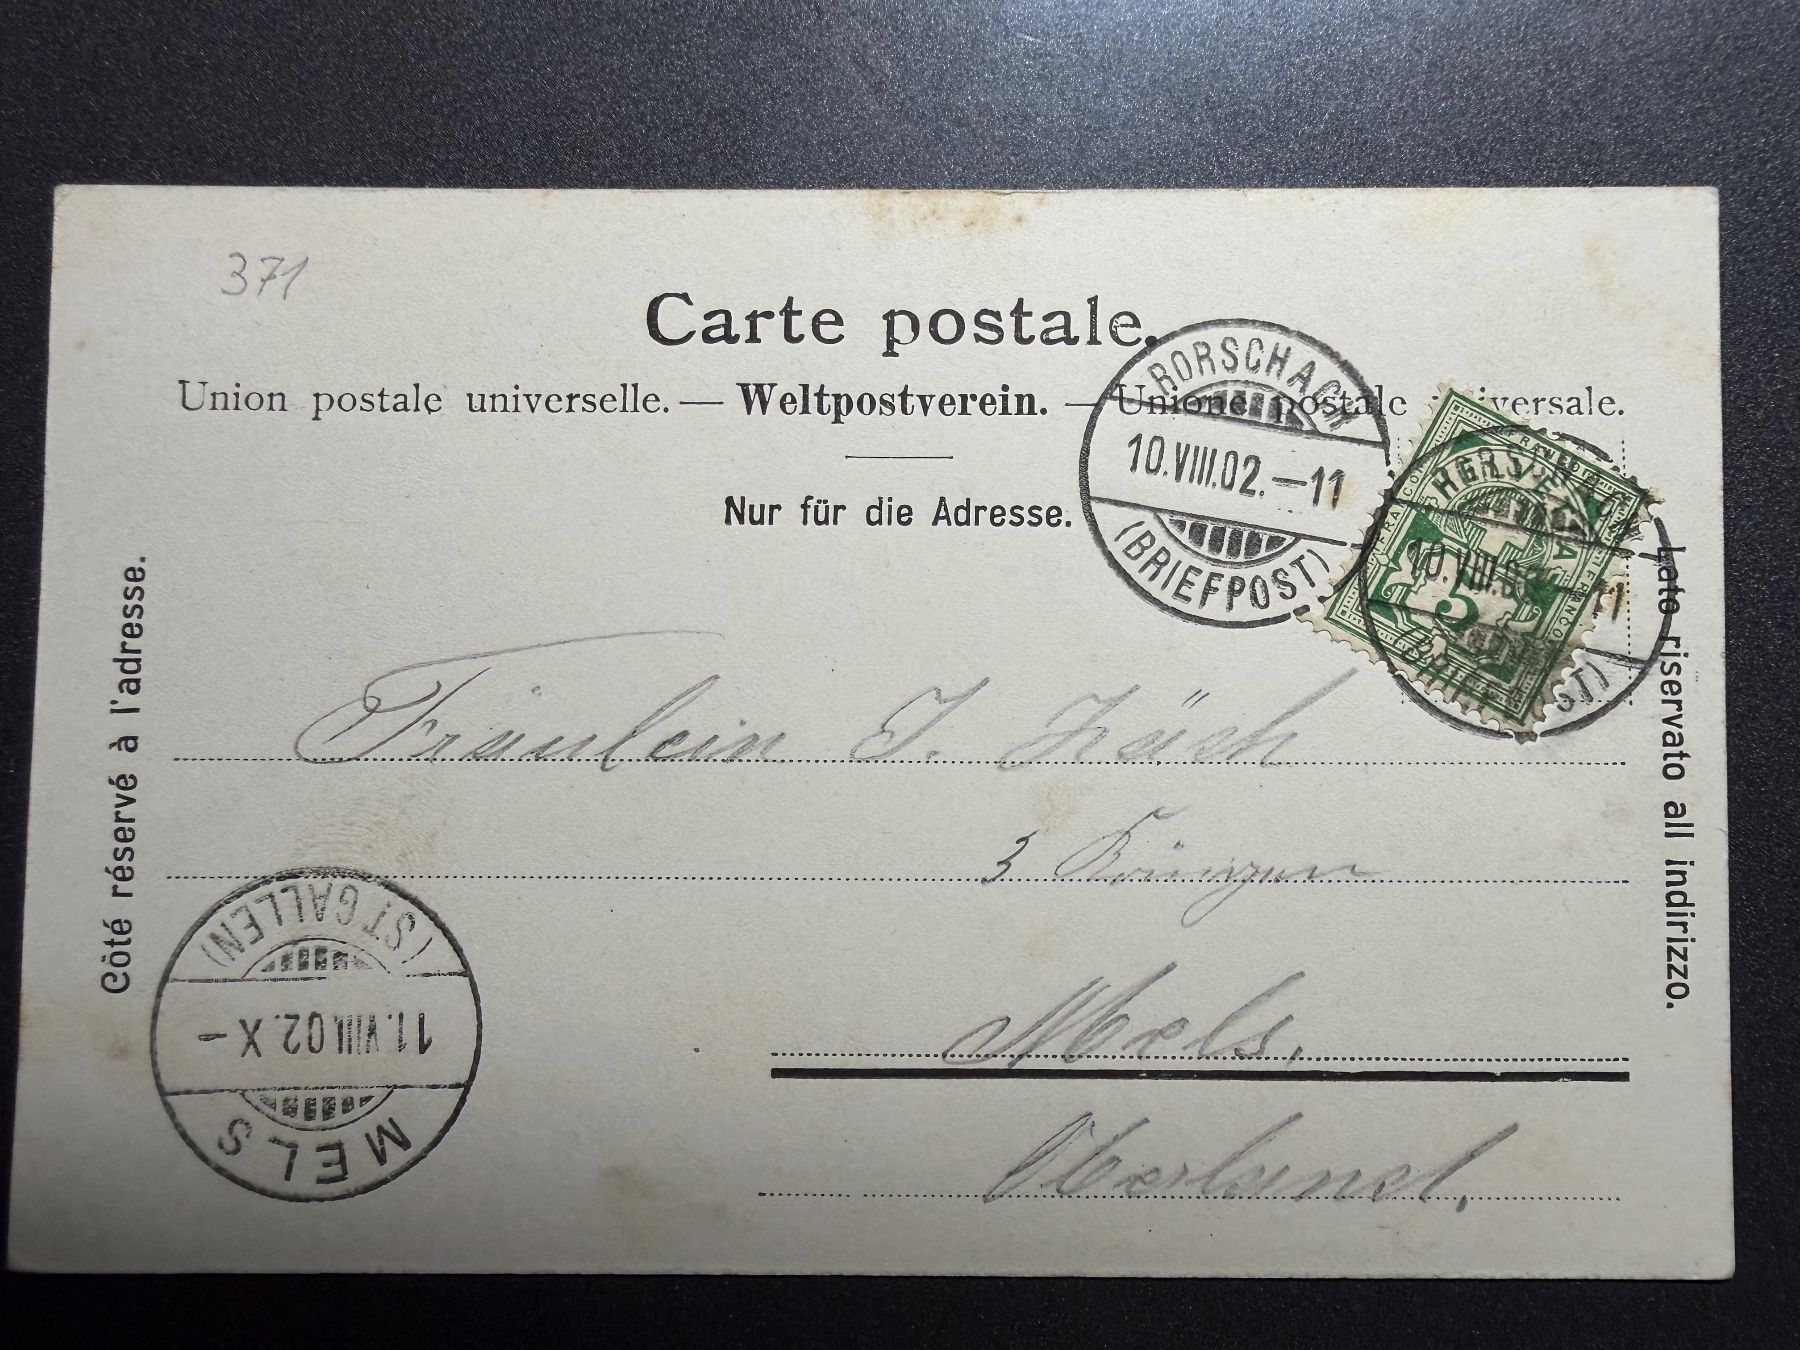 371
Carte postale.
Union postale universelle. — Weltpostverein. — Unione postale universale.
Nur für die Adresse.
Côté réservé à l'adresse.
Lato riservato all indirizzo.
RORSCHACH
10.VIII.02.—11
(BRIEFPOST)
FRANCO
5
RORSCHACH
10.VIII.02.—11
(BRIEFPOST)
Fräulein J. Zäch
3
Mels.
Oberland.
MELS
11.VIII.02.X-
(ST.GALLEN)